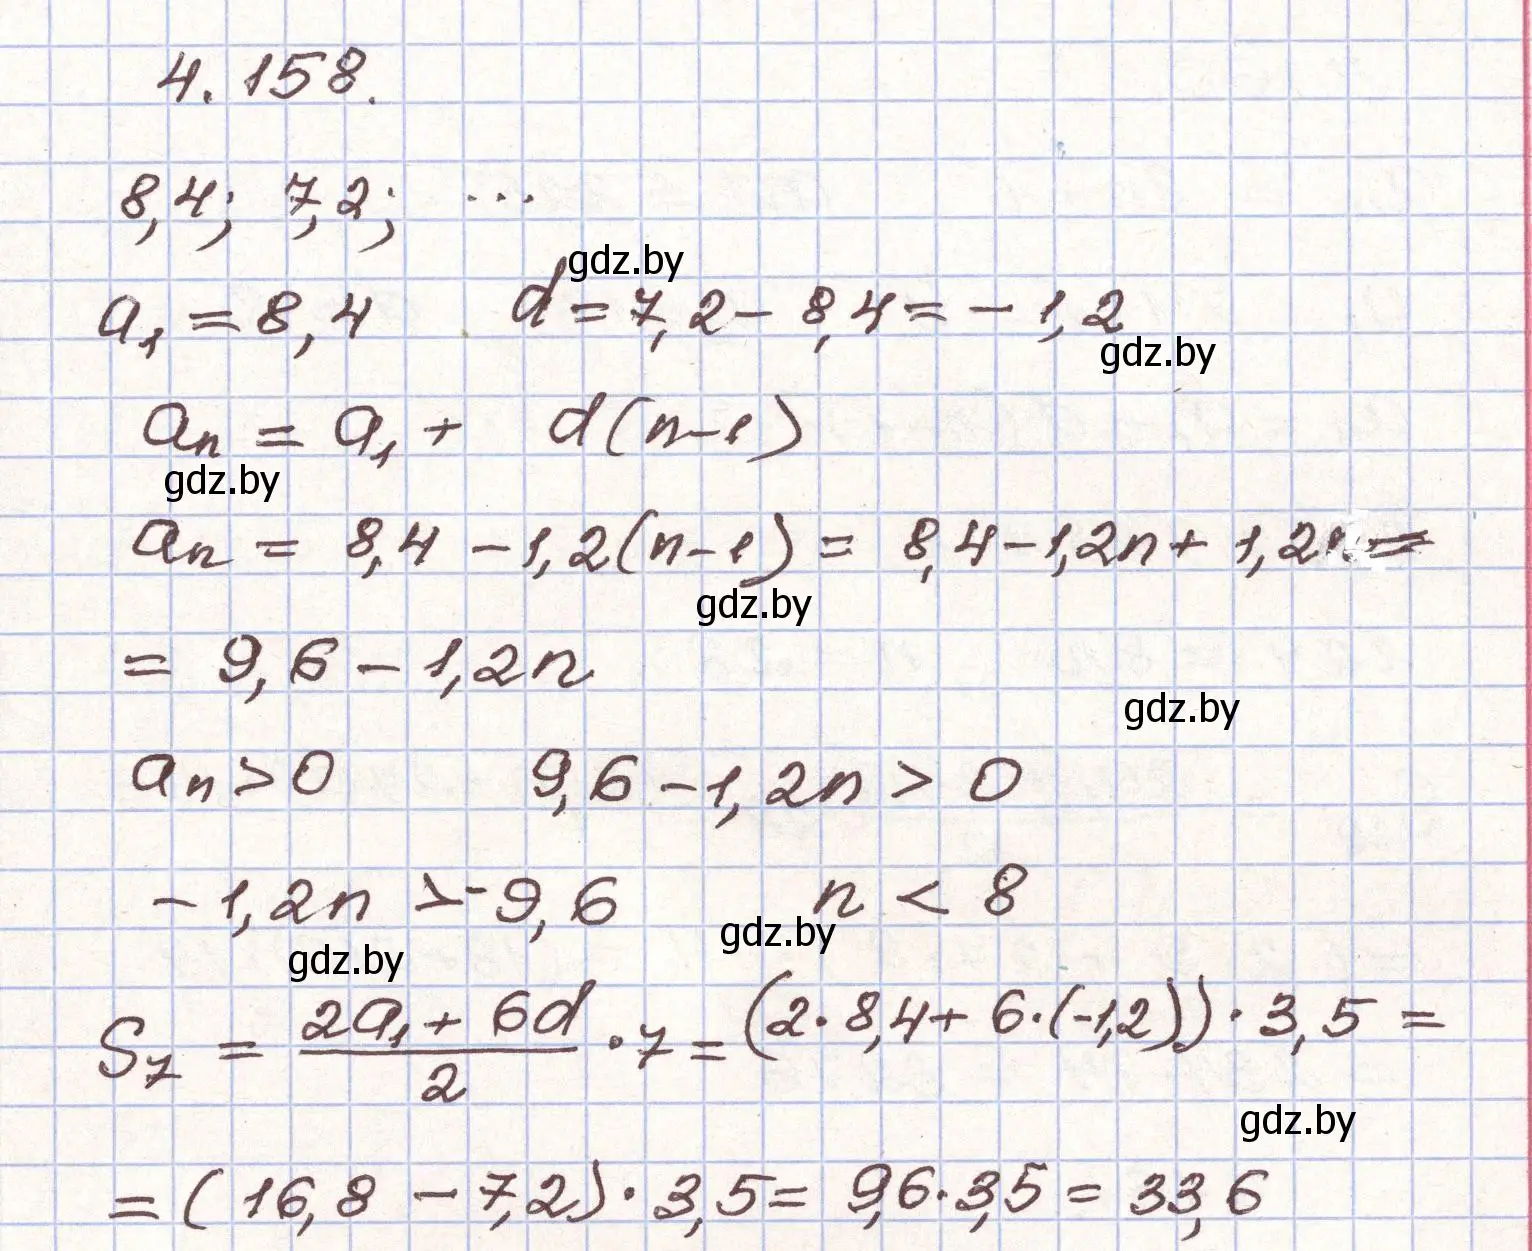 4.158.
8,4; 7,2; ...
gdz.by
a₁ = 8,4 d = 7,2 - 8,4 = - 1,2
gdz.by
aₙ = a₁ + d(n-1)
gdz.by
aₙ = 8,4 - 1,2(n-1) = 8,4 - 1,2n + 1,2 =
gdz.by
= 9,6 - 1,2n
gdz.by
aₙ > 0 9,6 - 1,2n > 0
- 1,2n > -9,6 n < 8
gdz.by
gdz.by
S₇ = (2a₁ + 6d)/2 · 7 = (2·8,4 + 6·(-1,2))·3,5 =
gdz.by
= (16,8 - 7,2)·3,5 = 9,6·3,5 = 33,6